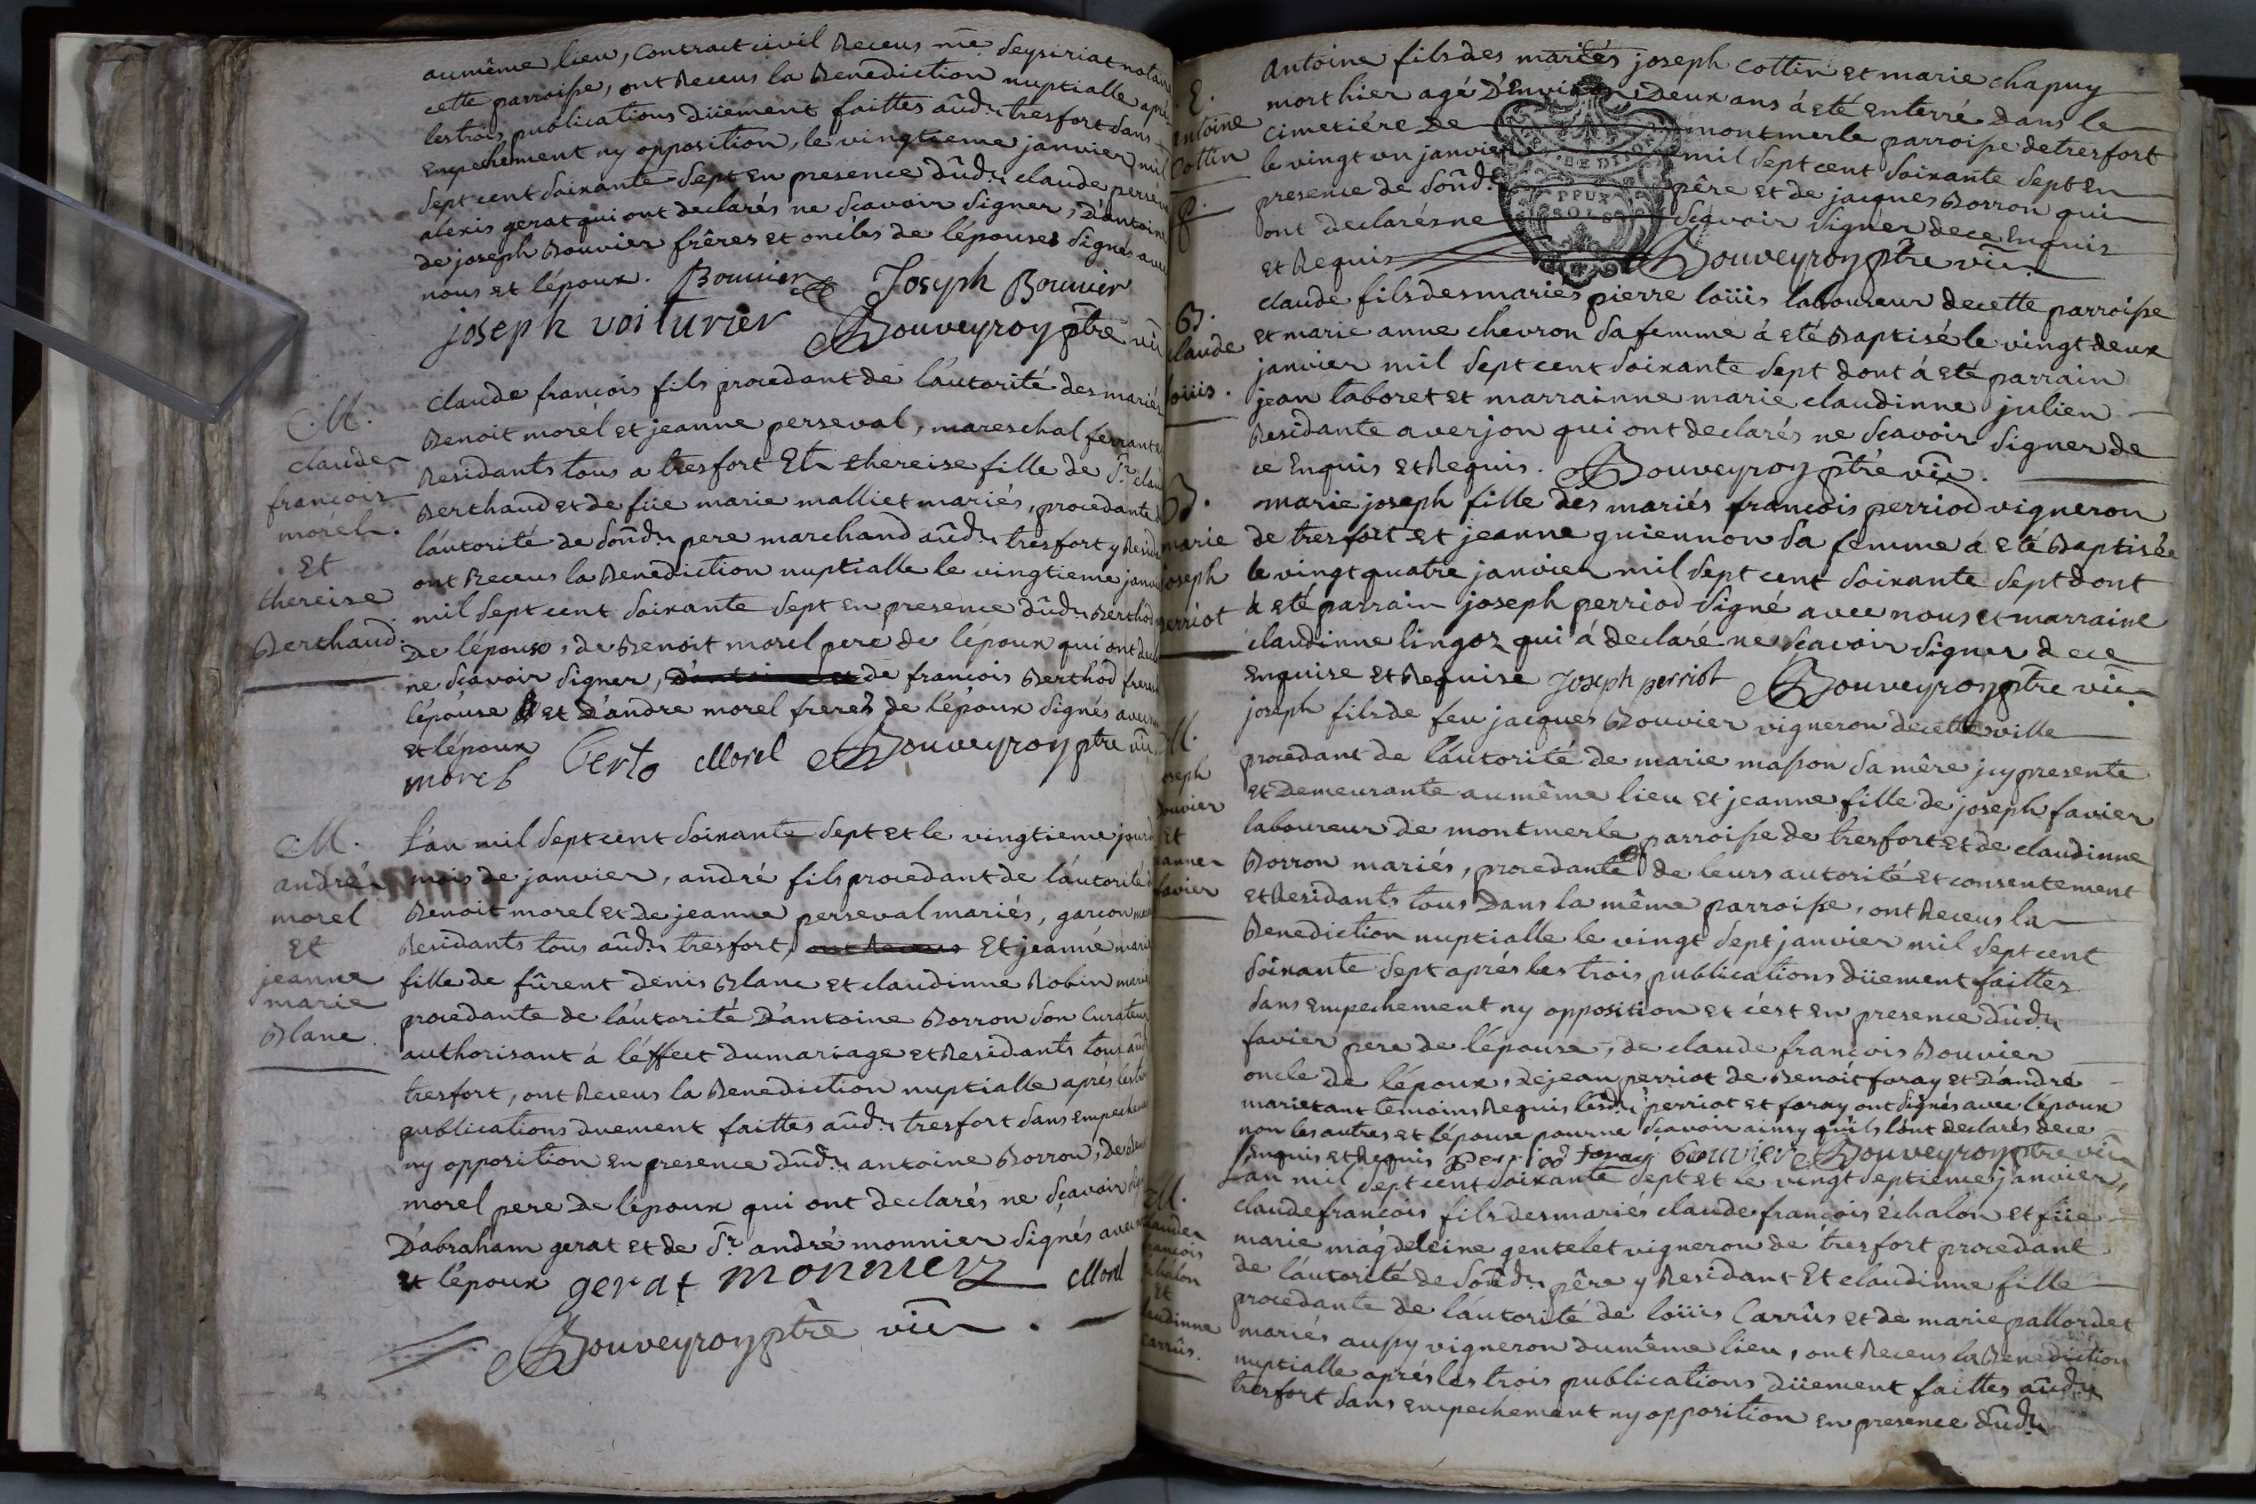 au même lieu, contract civil Receus me Seyziriat notaire
cette parroisse, ont Receus la Benediction nuptialle aprés
les trois publications düement faittes aûd: tresfort sans
Empechement ny opposition, le vingtieme janvier mil
sept cent soixante sept En presence dûd: claude
alexis gerat qui ont declarés ne scavoir signer, D'antoine
de joseph Bouvier frêres et oncles de lépouse signés avec
nous et lépoux. Bouvier Joseph Bouvier
joseph voiturier Bouveyron ptre vic
M.
claude
françois
morel.
Et
thereise
Berthaud.
claude françois fils procedant de láutorité des mariés
Benoit morel et jeanne perseval, mareschal ferrant et
Residants tous a tresfort Et thereise fille de Sr. claude
Berthaud et de füe marie malliet mariés, procedante de
láutorité de sond: pere marchand aûd: tresfort y Residant
ont Receus la Benediction nuptialle le vingtieme janvier
mil sept cent soixante sept En presence dûd: Berthod
De lépouse, de Benoit morel pere de lépoux qui ont declarés
ne scavoir signer, de françois Berthod frere de
lépouse et D'andre morel frere de lépoux signés avec nous
et lépoux Berto Morel Bouveyron ptre vic
morel
M.
andré
morel
Et
jeanne
marie
Blanc.
L'an mil sept cent soixante sept et le vingtieme jour du
mois de janvier, andré fils procedant de láutorité de
Benoit morel et de jeanne perseval mariés, garcon
Residants tous aûd: tresfort, ont Receus Et jeanne marie
fille de fûrent denis Blanc et claudinne Robin mariés
procedante de láutorité D'antoine Borron son Curateur
authorisant á léffect du mariage et Residants tous aud:
tresfort, ont Receus la Benediction nuptialle aprés les trois
publications duement faittes aûd: tresfort sans Empechement
ny opposition En presence dûd: antoine Borron, De Benoit
morel pere De lépoux qui ont declarés ne scavoir signer
D'abraham gerat et de Sr. andré monnier signés avec nous
et lépoux gerat monnier Morel
Bouveyron ptre vic.
E.
antoine
Cottin
Antoine fils des mariés joseph Cottin et marie chapuy
mort hier agé D'Environ Deux ans á eté Enterré dans le
cimetiére De montmerle parroisse de tresfort
le vingt un janvier mil sept cent soixante sept En
presence de sond: pêre et de jacques Borron qui
ont declarés ne scavoir signer de ce Enquis
et Requis Bouveyron ptre vic.
B.
claude
loüis.
claude fils des mariés pierre loüis laboureur de cette parroisse
et marie anne chevron sa femme á eté Baptisé le vingt deux
janvier mil sept cent soixante sept dont á eté parrain
jean laboret et marrainne marie claudinne julien
Residante a verjon qui ont declarés ne scavoir signer de
ce Enquis et Requis. Bouveyron ptre vic.
B.
marie
joseph
perriot
marie joseph fille des mariés françois perriod vigneron
de tresfort et jeanne guiennon sa femme á eté Baptisée
le vingt quatre janvier mil sept cent soixante sept dont
á eté parrain joseph perriod signé avec nous et marraine
claudinne lingoz qui á declaré ne scavoir signer de ce
Enquise et Requise Joseph perriot Bouveyron ptre vic.
M.
joseph
Bouvier
Et
jeanne
favier
joseph fils de feu jacques Bouvier vigneron de cette ville
procedant de láutorité de marie masson sa mêre jcy presente
et Demeurante au même lieu et jeanne fille de joseph favier
laboureur de montmerle parroisse de tresfort et de claudinne
Borron mariés, procedante de leurs autorité et consentement
et Residants tous Dans la même parroisse, ont Receus la
Benediction nuptialle le vingt sept janvier mil sept cent
soixante sept aprés les trois publications düement faittes
sans Empechement ny opposition et cést En presence dûd:
favier pere de lépouse, de claude françois Bouvier
oncle de lépoux, de jean perriot de Benoit foray et D'andré
marietant temoins Requis lesd: perriot et foray ont signés avec lépoux
non les autres et lépouse pour ne scavoir ainsy quils lont declarés de ce
Enquis et Requis perriod foray bouvier Bouveyron ptre vic
M.
claude
françois
échalon
Et
claudinne
Carrûs.
L'an mil sept cent soixante sept et le vingt septieme janvier,
claude françois fils des mariés claude françois échalon et füe
marie magdeleine gentelet vigneron de tresfort procedant
de láutorité de sond: pêre y Residant Et claudinne fille
procedante de láutorité de loüis Carrûs et de marie pallordet
mariés aussy vigneron du même lieu, ont Receus la Benediction
nuptialle aprés les trois publications düement faittes aûd:
tresfort sans Empechement ny opposition En presence dûd: